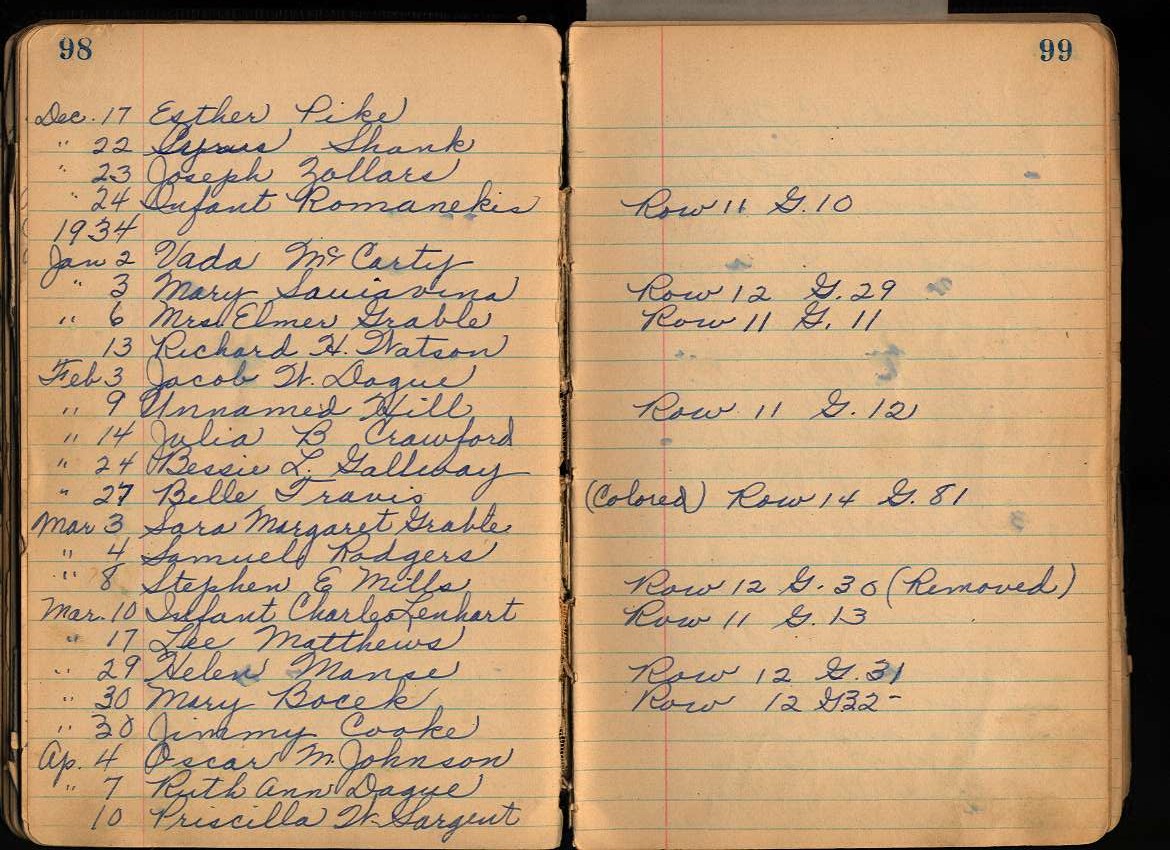 98
99
Dec. 17 Esther Pike
" 22 Cyrus Shank
" 23 Joseph Zollars
" 24 Infant Romanekis Row 11 G. 10
1934
Jan 2 Vada McCarty
" 3 Mary Row 12 G. 29
" 6 Mrs. Elmer Grable Row 11 G. 11
13 Richard H. Watson
Feb 3 Jacob W. Dague
" 9 Unnamed Hill Row 11 G. 12
" 14 Julia B Crawford
" 24 Bessie L. Gallway
" 27 Belle Travis (Colored) Row 14 G. 81
Mar 3 Sara Margaret Grable
" 4 Samuel Rodgers
" 8 Stephen E Mills Row 12 G. 30 (Removed)
Mar. 10 Infant Charles Lenhart Row 11 G. 13
" 17 Lee Matthews
" 29 Helen Manse Row 12 G. 31
" 30 Mary Bocek Row 12 G32-
" 30 Jimmy Cooke
Ap. 4 Oscar M. Johnson
" 7 Ruth Ann Dague
10 Priscilla W. Sargent